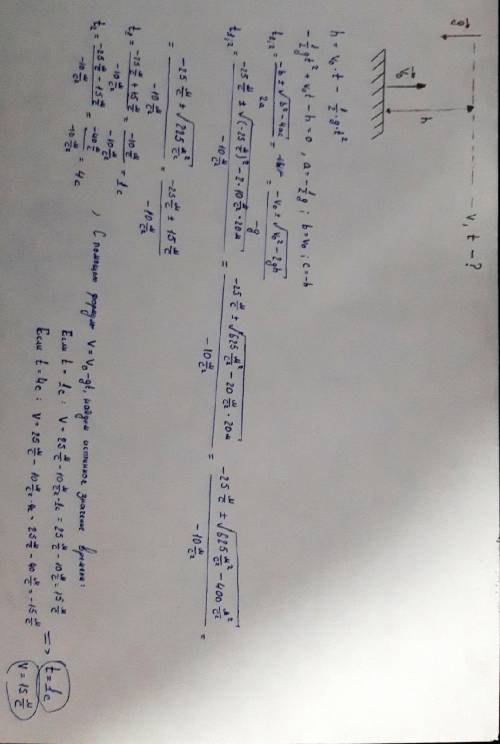 g
v₀
h
v, t - ?
h = v₀·t - ½·g·t²
-½gt² + v₀t - h = 0 , a = -½g ; b = v₀ ; c = -h
t₁,₂ = (-b ± √(b² - 4ac)) / 2a = (-v₀ ± √(v₀² - 2gh)) / -g
t₁,₂ = (-25 м/с ± √((-25 м/с)² - 2·10 м/с²·20м)) / -10 м/с² = (-25 м/с ± √(625 м²/с² - 20 м/с²·20м)) / -10 м/с² = (-25 м/с ± √(625 м²/с² - 400 м²/с²)) / -10 м/с² =
= (-25 м/с ± √(225 м²/с²)) / -10 м/с² = (-25 м/с ± 15 м/с) / -10 м/с²
t₁ = (-25 м/с + 15 м/с) / -10 м/с² = (-10 м/с) / -10 м/с² = 1с
t₂ = (-25 м/с - 15 м/с) / -10 м/с² = (-40 м/с) / -10 м/с² = 4с
, С помощью формулы V = V₀ - gt, найдем истинное значение времени:
Если t = 1с : V = 25 м/с - 10 м/с²·1с = 25 м/с - 10 м/с = 15 м/с
Если t = 4с : V = 25 м/с - 10 м/с²·4с = 25 м/с - 40 м/с = -15 м/с
=> t = 1с
V = 15 м/с